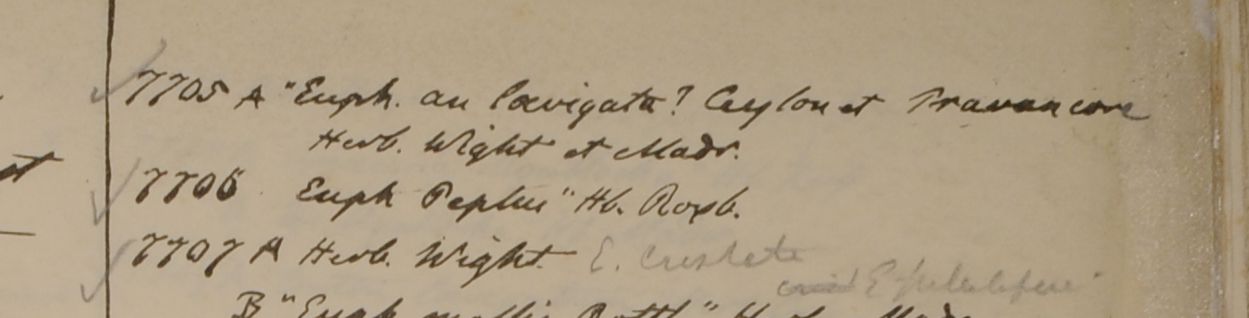 7705 A "Euph. an lævigata? Ceylon et Travancore
Herb. Wight et Madr.
7706 Euph Peplus" Hb. Roxb.
7707 A Herb. Wight. E. cristata
B "Euph mollis Rottl"